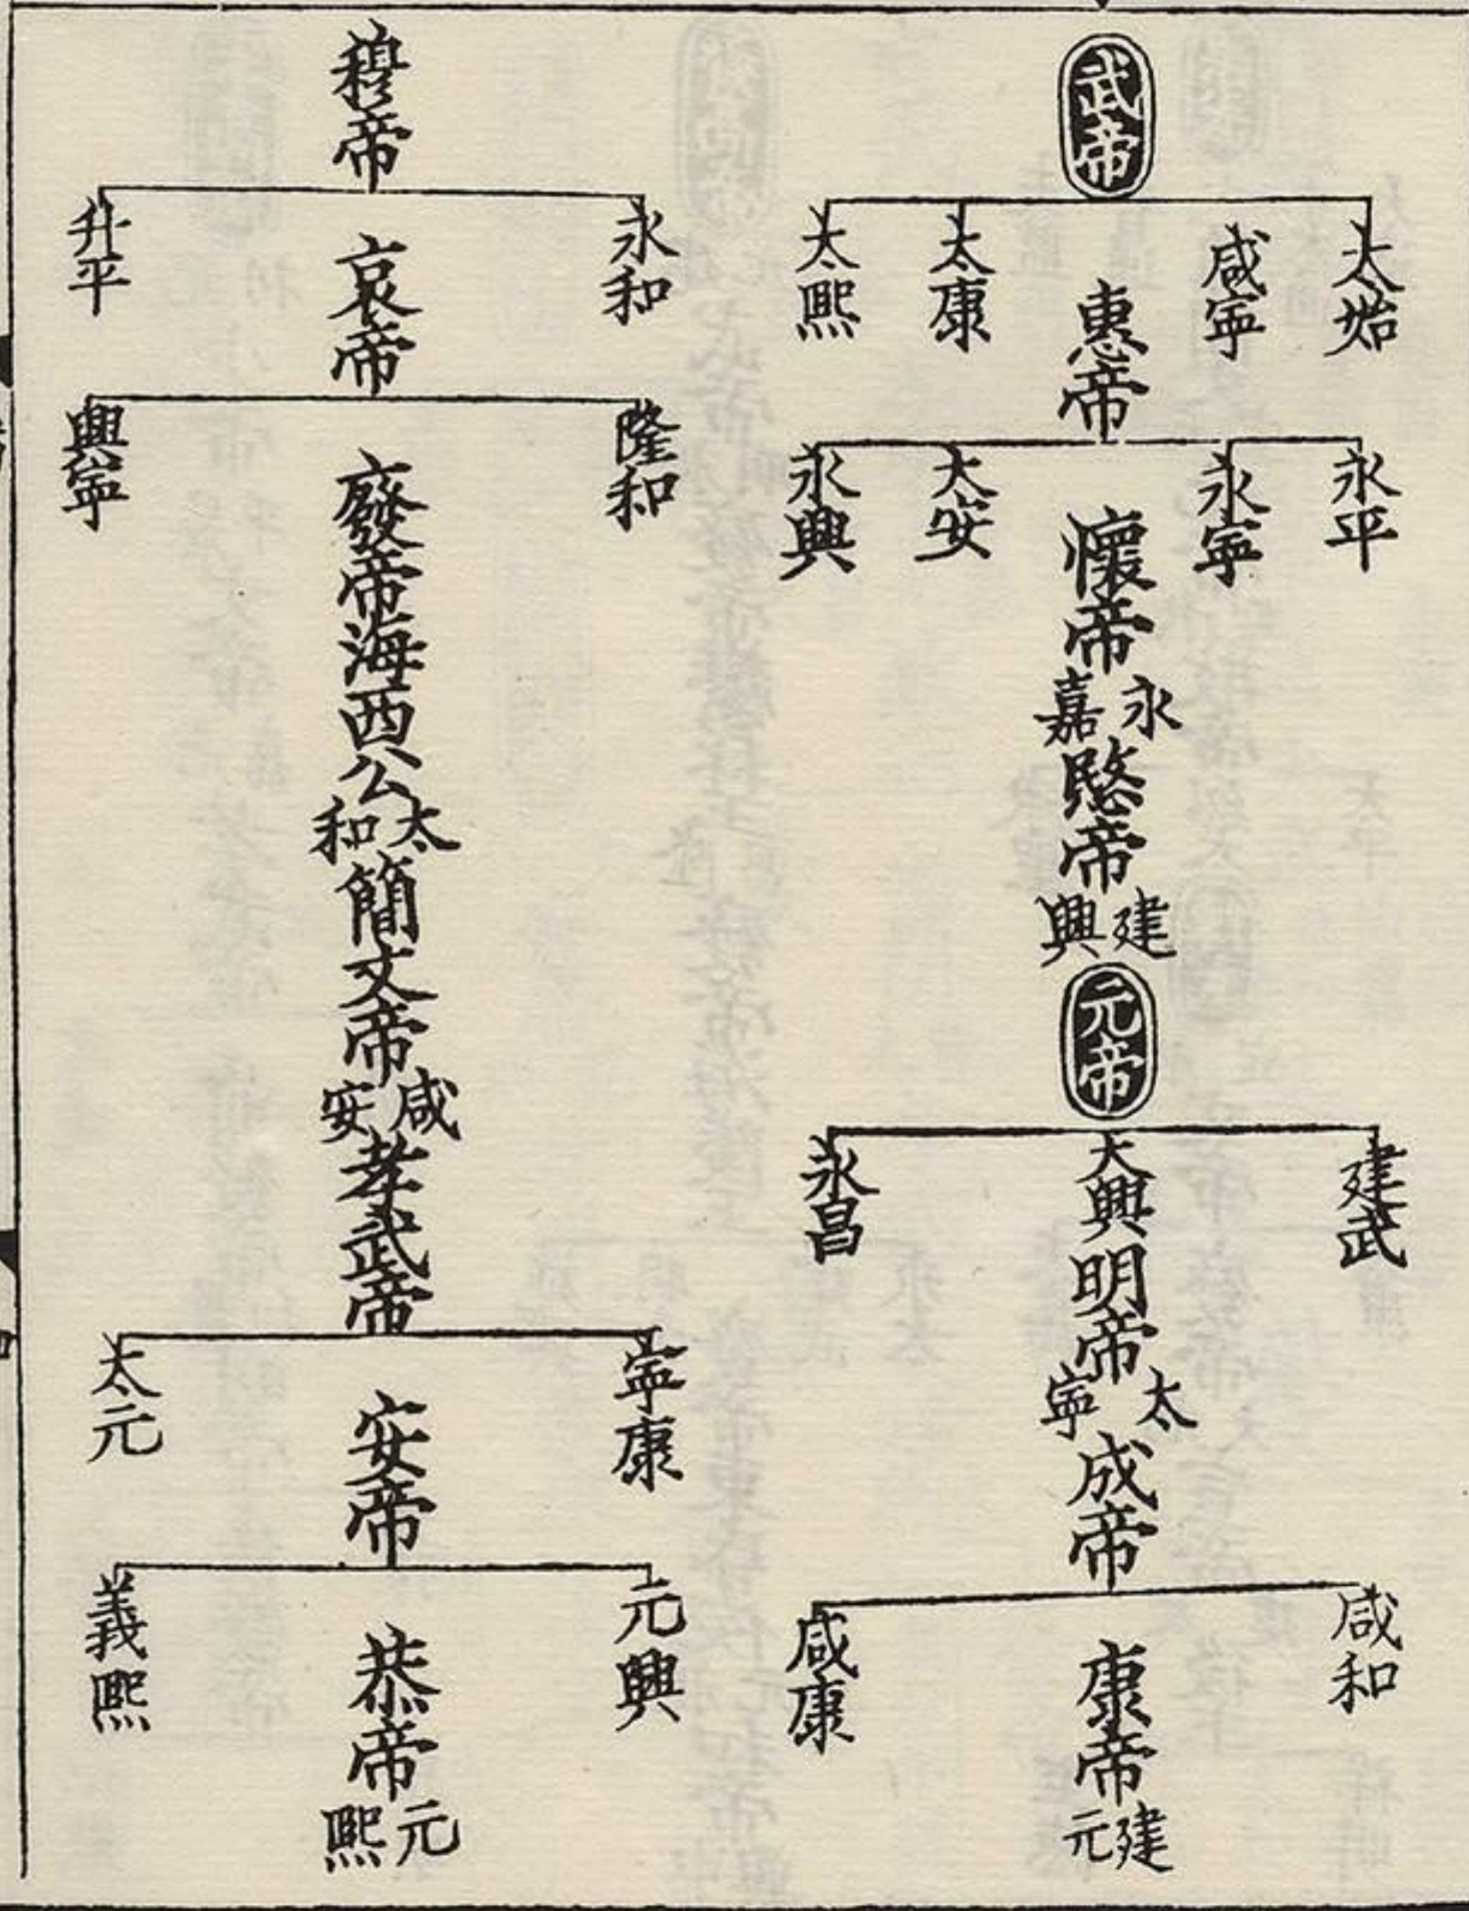 武帝
太始
咸寧
太康
太熙
惠帝
永平
永寧
太安
永興
懷帝
永嘉
愍帝
建興
元帝
建武
大興
永昌
明帝
太寧
成帝
咸和
咸康
康帝
建元
穆帝
永和
升平
哀帝
隆和
興寧
廢帝海西公
太和
簡文帝
咸安
孝武帝
寧康
太元
安帝
元興
義熙
恭帝
元熙